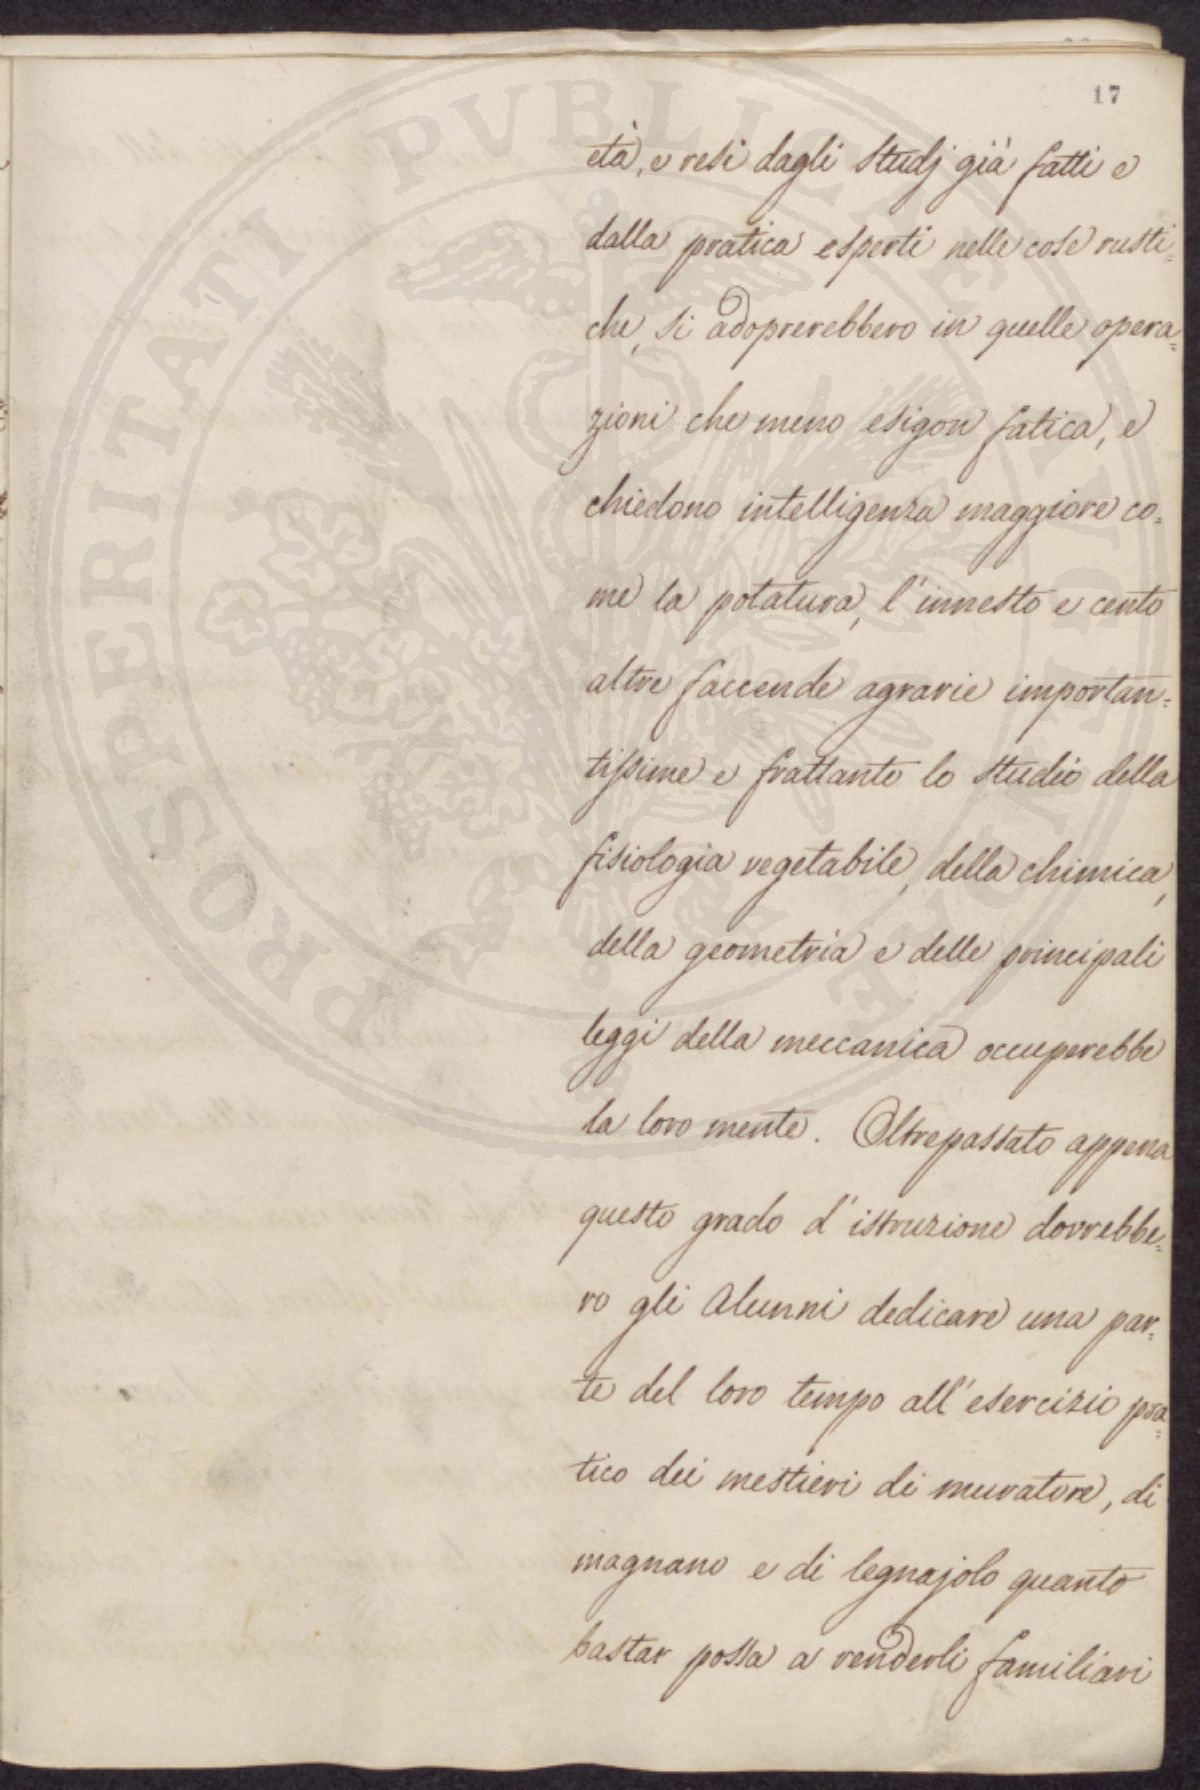 17
età, e resi dagli studj già fatti e
dalla pratica esperti nelle cose rusti=
che, si adoprerebbero in quelle opera=
zioni che meno esigon fatica, e
chiedono intelligenza maggiore co=
me la potatura, l'innesto e cento
altre faccende agrarie importan=
tissime e frattanto lo studio della
fisiologia vegetabile, della chimica,
della geometria e delle principali
leggi della meccanica occuperebbe
la loro mente. Oltrepassato appena
questo grado d'istruzione dovrebbe=
ro gli Alunni dedicare una par=
te del loro tempo all'esercizio pra=
tico dei mestieri di muratore, di
magnano e di legnajolo quanto
bastar possa a renderli familiari
PROSPERITATI PVBLICAE AVGENDAE